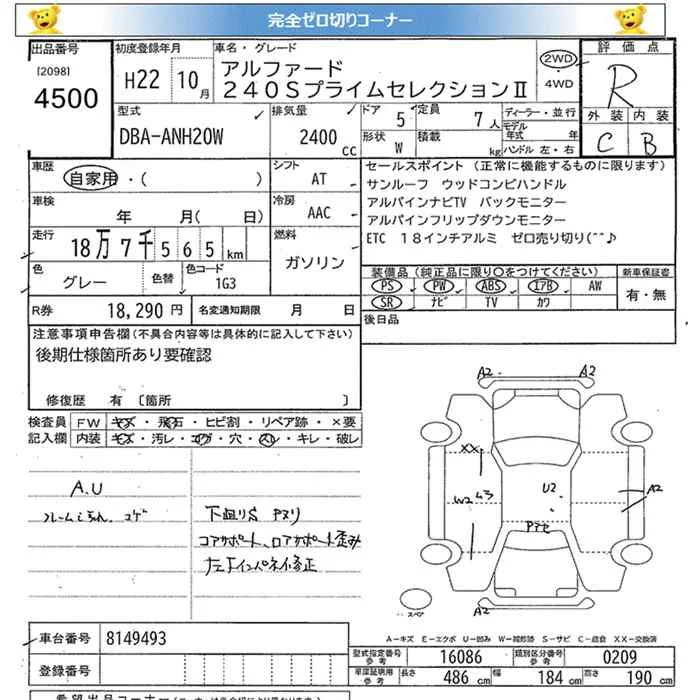 完全ゼロ切りコーナー
出品番号
[2098]
4500
初度登録年月
H22 10月
車名・グレード
アルファード
240SプライムセレクションⅡ
2WD
・4WD
評価点
R
外装 内装
C B
型式
DBA-ANH20W
排気量
2400
CC
ドア 5
形状 W
定員 7人
積載 kg
ディーラー・並行
モデル
年式 年
ハンドル 左・右
車歴
自家用・( )
車検
年 月( 日)
走行
18万7千565km
色
グレー
色替
色コード
1G3
シフト
AT
冷房
AAC
燃料
ガソリン
セールスポイント (正常に機能するものに限ります)
サンルーフ ウッドコンビハンドル
アルパインナビTV バックモニター
アルパインフリップダウンモニター
ETC 18インチアルミ ゼロ売り切り(^^♪
装備品(純正品に限り〇をつけてください)
PS PW ABS エアB AW
SR ナビ TV カワ
新車保証書
有・無
R券 18,290円
名変通知期限 月 日
後日品
注意事項申告欄(不具合内容等は具体的に記入して下さい)
後期仕様箇所あり要確認
修復歴 有 〔箇所 〕
検査員
記入欄
FW キズ・飛石・ヒビ割・リペア跡・×要
内装 キズ・汚レ・コゲ・穴・スレ・キレ・破レ
A.U
下廻りS アヌリ
コアサポート、ロアサポート歪み
左Fインパネ修正
A2 A2
XX
W2
U2
A2
Pアセ
A2
スペア
A－キズ E－エクボ U－凹み W－補修跡 S－サビ C－腐食 XX－交換済
車台番号 8149493
登録番号
型式指定番号
参考
16086
類別区分番号
参考
0209
車庫証明用
参考
長さ 486 cm
幅 184 cm
高さ 190 cm